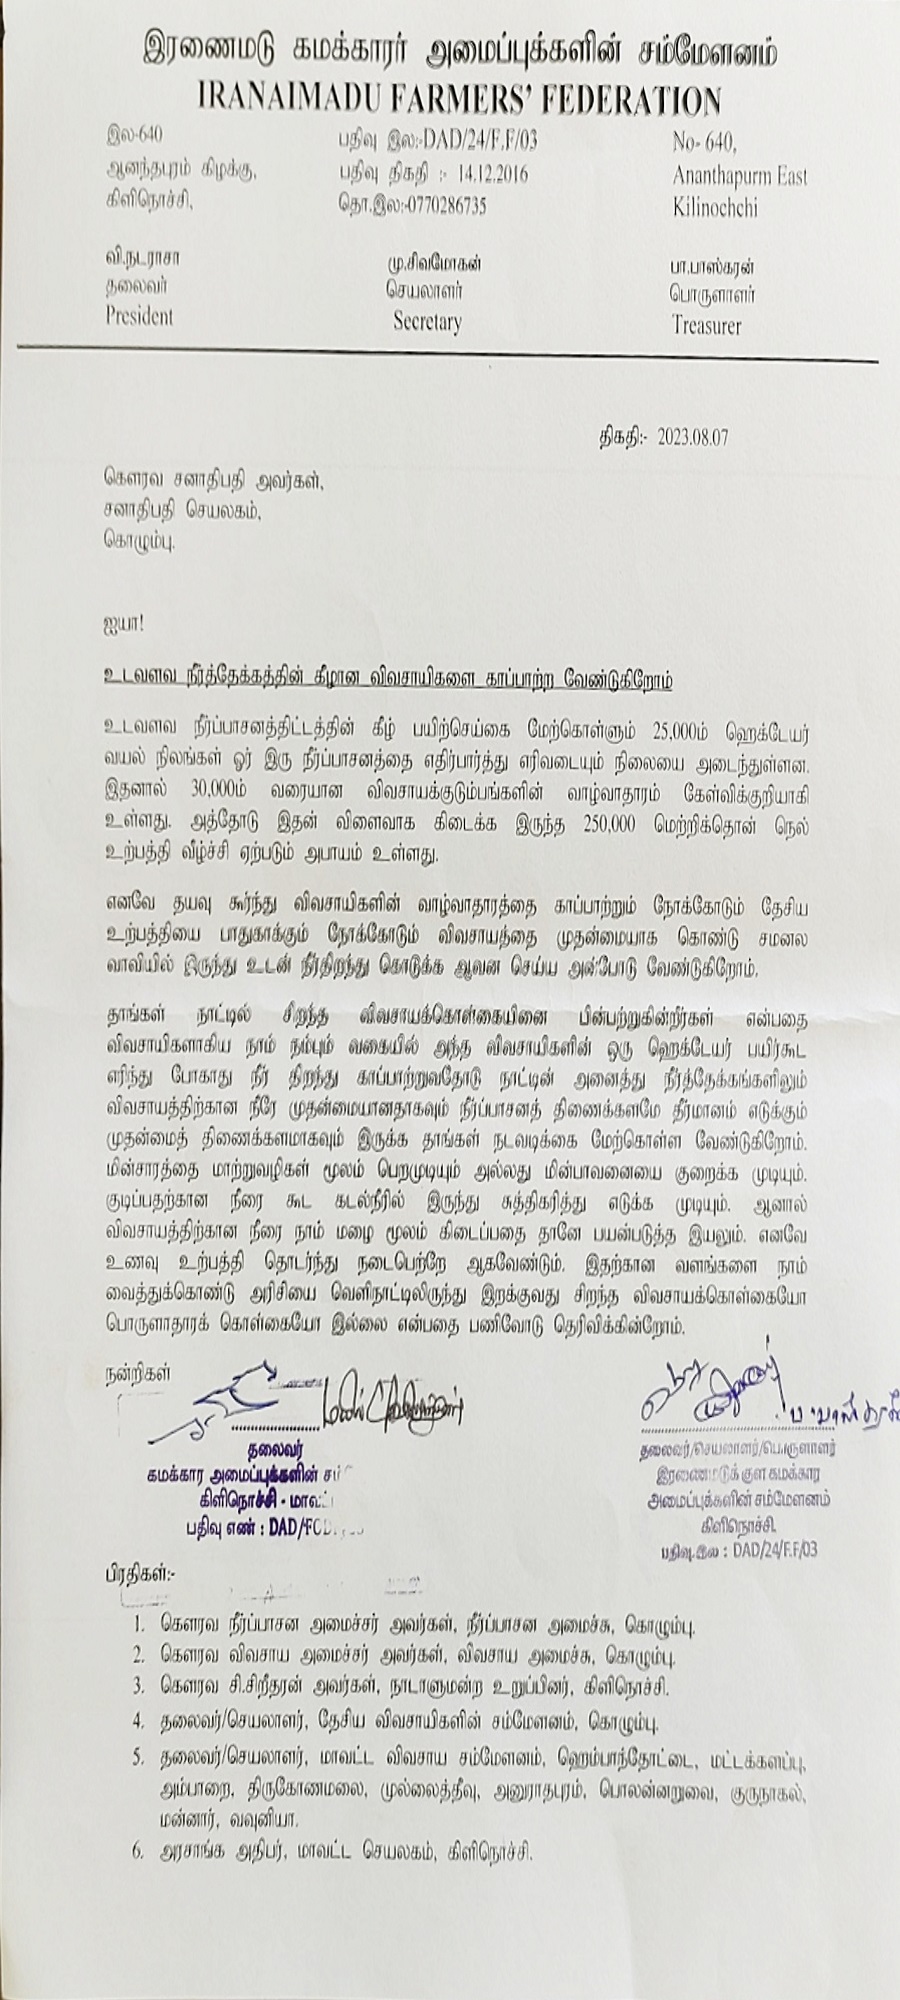 இரணைமடு கமக்காரர் அமைப்புக்களின் சம்மேளனம்
IRANAIMADU FARMERS' FEDERATION
இல-640
ஆனந்தபுரம் கிழக்கு,
கிளிநொச்சி,
பதிவு இல:-DAD/24/F.F/03
பதிவு திகதி :- 14.12.2016
தொ.இல:-0770286735
No- 640,
Ananthapurm East
Kilinochchi
வி.நடராசா
தலைவர்
President
மு.சிவமோகன்
செயலாளர்
Secretary
பா.பாஸ்கரன்
பொருளாளர்
Treasurer
திகதி:- 2023.08.07
கௌரவ சனாதிபதி அவர்கள்,
சனாதிபதி செயலகம்,
கொழும்பு.
ஐயா!
உடவளவ நீர்த்தேக்கத்தின் கீழான விவசாயிகளை காப்பாற்ற வேண்டுகிறோம்
உடவளவ நீர்ப்பாசனத்திட்டத்தின் கீழ் பயிற்செய்கை மேற்கொள்ளும் 25,000ம் ஹெக்டேயர்
வயல் நிலங்கள் ஓர் இரு நீர்ப்பாசனத்தை எதிர்பார்த்து எரிவடையும் நிலையை அடைந்துள்ளன.
இதனால் 30,000ம் வரையான விவசாயக்குடும்பங்களின் வாழ்வாதாரம் கேள்விக்குறியாகி
உள்ளது. அத்தோடு இதன் விளைவாக கிடைக்க இருந்த 250,000 மெற்றிக்தொன் நெல்
உற்பத்தி வீழ்ச்சி ஏற்படும் அபாயம் உள்ளது.
எனவே தயவு கூர்ந்து விவசாயிகளின் வாழ்வாதாரத்தை காப்பாற்றும் நோக்கோடும் தேசிய
உற்பத்தியை பாதுகாக்கும் நோக்கோடும் விவசாயத்தை முதன்மையாக கொண்டு சமனல
வாவியில் இருந்து உடன் நீர்திறந்து கொடுக்க ஆவன செய்ய அன்போடு வேண்டுகிறோம்.
தாங்கள் நாட்டில் சிறந்த விவசாயக்கொள்கையினை பின்பற்றுகின்றீர்கள் என்பதை
விவசாயிகளாகிய நாம் நம்பும் வகையில் அந்த விவசாயிகளின் ஒரு ஹெக்டேயர் பயிர்கூட
எரிந்து போகாது நீர் திறந்து காப்பாற்றுவதோடு நாட்டின் அனைத்து நீர்த்தேக்கங்களிலும்
விவசாயத்திற்கான நீரே முதன்மையானதாகவும் நீர்ப்பாசனத் திணைக்களமே தீர்மானம் எடுக்கும்
முதன்மைத் திணைக்களமாகவும் இருக்க தாங்கள் நடவடிக்கை மேற்கொள்ள வேண்டுகிறோம்.
மின்சாரத்தை மாற்றுவழிகள் மூலம் பெறமுடியும் அல்லது மின்பாவனையை குறைக்க முடியும்.
குடிப்பதற்கான நீரை கூட கடல்நீரில் இருந்து சுத்திகரித்து எடுக்க முடியும். ஆனால்
விவசாயத்திற்கான நீரை நாம் மழை மூலம் கிடைப்பதை தானே பயன்படுத்த இயலும். எனவே
உணவு உற்பத்தி தொடர்ந்து நடைபெற்றே ஆகவேண்டும். இதற்கான வளங்களை நாம்
வைத்துக்கொண்டு அரிசியை வெளிநாட்டிலிருந்து இறக்குவது சிறந்த விவசாயக்கொள்கையோ
பொருளாதாரக் கொள்கையோ இல்லை என்பதை பணிவோடு தெரிவிக்கின்றோம்.
நன்றிகள்
தலைவர்
கமக்கார அமைப்புக்களின்
கிளிநொச்சி - மாவட்
பதிவு எண் :
தலைவர்/செயலாளர்/பொருளாளர்
இரணைமடுக்குள கமக்கார
அமைப்புக்களின் சம்மேளனம்
கிளிநொச்சி.
பதிவு.இல : DAD/24/F.F/03
பிரதிகள்:-
1. கௌரவ நீர்ப்பாசன அமைச்சர் அவர்கள், நீர்ப்பாசன அமைச்சு, கொழும்பு.
2. கௌரவ விவசாய அமைச்சர் அவர்கள், விவசாய அமைச்சு, கொழும்பு.
3. கௌரவ சி.சிறீதரன் அவர்கள், நாடாளுமன்ற உறுப்பினர், கிளிநொச்சி.
4. தலைவர்/செயலாளர், தேசிய விவசாயிகளின் சம்மேளனம், கொழும்பு.
5. தலைவர்/செயலாளர், மாவட்ட விவசாய சம்மேளனம், ஹெம்பாந்தோட்டை, மட்டக்களப்பு,
அம்பாறை, திருகோணமலை, முல்லைத்தீவு, அனுராதபுரம், பொலன்னறுவை, குருநாகல்,
மன்னார், வவுனியா.
6. அரசாங்க அதிபர், மாவட்ட செயலகம், கிளிநொச்சி.